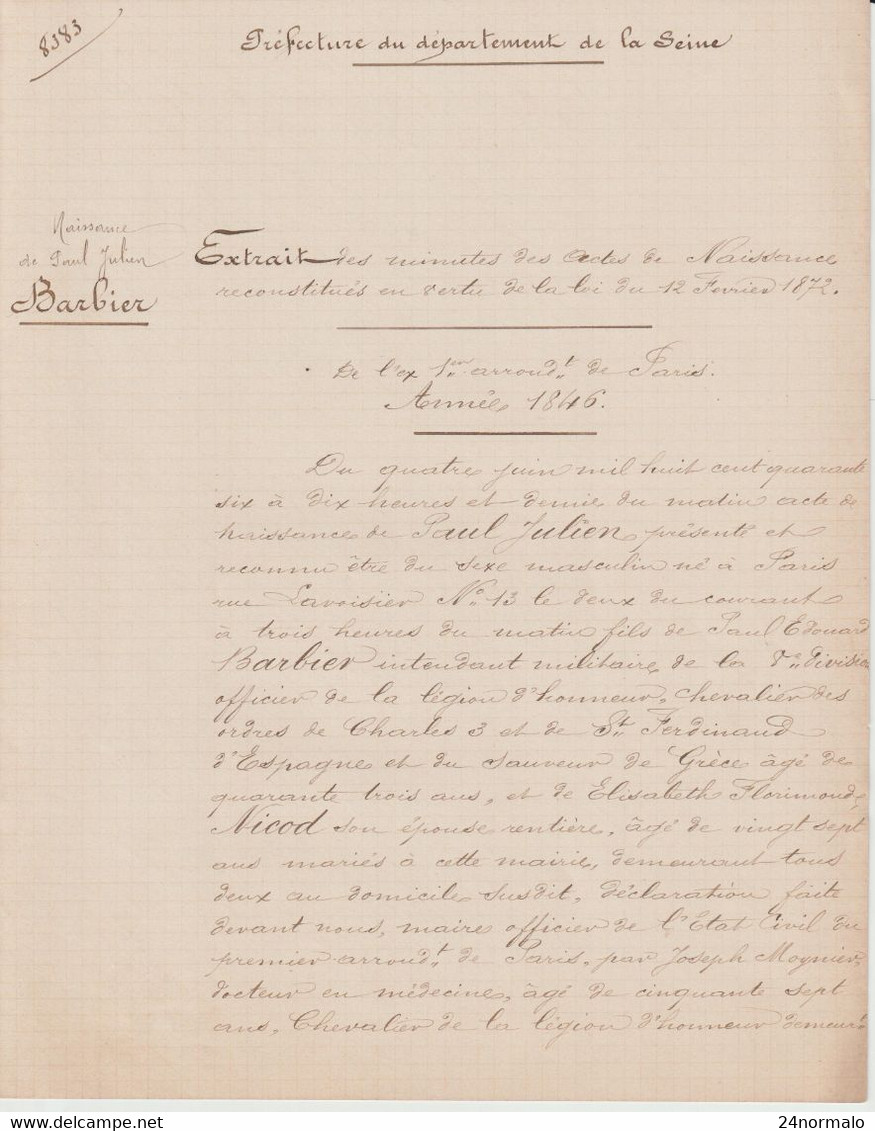 8383
Préfecture du département de la Seine
Naissance
de Paul Julien
Barbier
Extrait des minutes des actes de Naissance
reconstitués en vertu de la loi du 12 Fevrier 1872.
De l'ex 1er arrondt de Paris.
Année 1846.
Du quatre juin mil huit cent quarante
six à dix heures et demie du matin acte de
naissance de Paul Julien, présenté et
reconnu être du sexe masculin né à Paris
rue Lavoisier No 13 le deux du courant
à trois heures du matin fils de Paul Edouard
Barbier intendant militaire de la 8e division
officier de la légion d'honneur, chevalier des
ordres de Charles 3 et de St Ferdinand
d'Espagne et du Sauveur de Grèce âgé de
quarante trois ans, et de Elisabeth Florimonde
Nicod son épouse rentière, âgé de vingt sept
ans mariés à cette mairie, demeurant tous
deux au domicile susdit, déclaration faite
devant nous, maire officier de l'Etat Civil du
premier arrondt de Paris, par Joseph Moynier,
docteur en médecine, âgé de cinquante sept
ans, Chevalier de la légion d'honneur demeurt
www.delcampe.net
24normalo